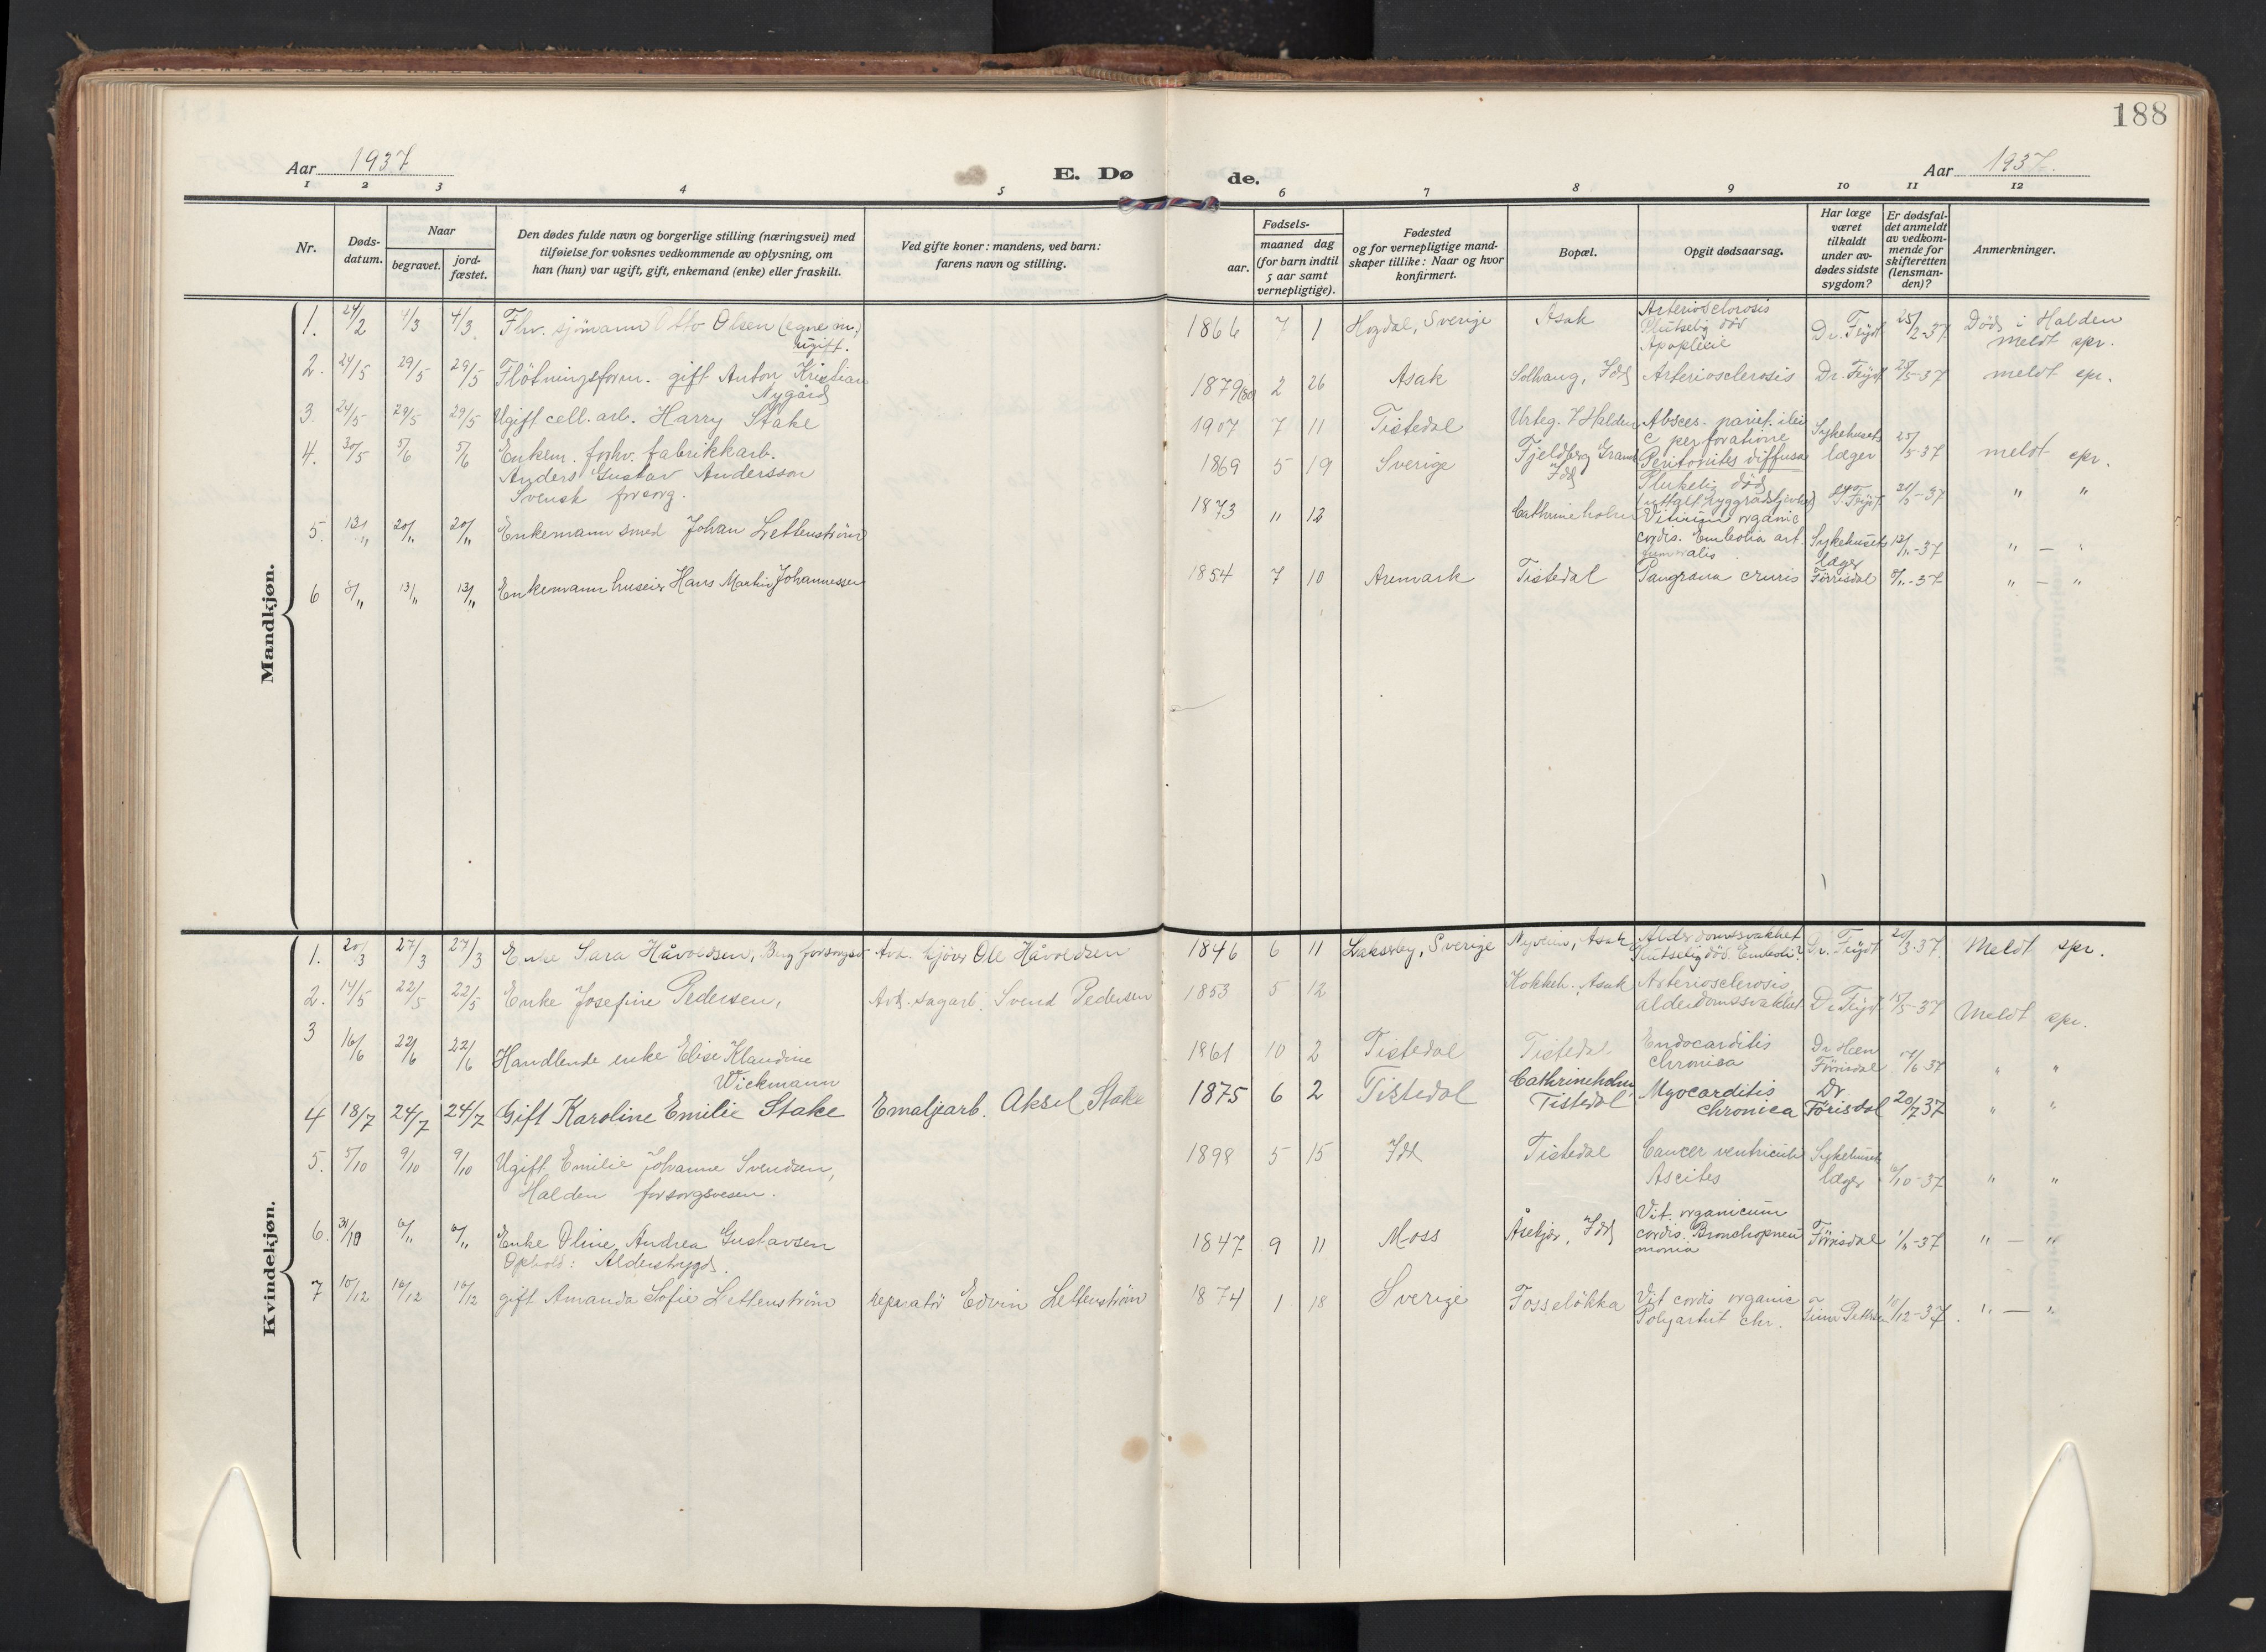 188
Aar 1937
E. Dø de.
Aar 1937.
1 2 3 4 5 6 7 8 9 10 11 12
Nr.
Døds-
datum.
Naar
begravet.
jord-
fæstet.
Den dødes fulde navn og borgerlige stilling (næringsvei) med
tilføielse for voksnes vedkommende av oplysning, om
han (hun) var ugift, gift, enkemand (enke) eller fraskilt.
Ved gifte koner: mandens, ved barn:
farens navn og stilling.
Fødsels-
aar.
maaned dag
(for barn indtil
5 aar samt
vernepligtige).
Fødested
og for vernepligtige mand-
skaper tillike: Naar og hvor
konfirmert.
Bopæl.
Opgit dødsaarsag.
Har læge
været
tilkaldt
under av-
dødes sidste
sygdom?
Er dødsfal-
det anmeldt
av vedkom-
mende for
skifteretten
(lensman-
den)?
Anmerkninger.
Mandkjøn.
1. 24/2 4/3 4/3 Fhv. sjömann Otto Olsen (egne m.)
ugift.
1866 7 1 Hogdal, Sverige Asak
Arteriosclerosis
Plutselig död
Apoplexie
Dr. Feydt 25/2-37 Död i Halden
meldt spr.
2. 24/5 29/5 29/5 Flötningsform. gift Anton Kristian
Nygård
1879 2 26 Asak Solhaug, Idd Arteriosclerosis Dr. Feydt 25/5-37 meldt spr.
3. 24/5 29/5 29/5 Ugift cell. arb. Harry Stake
1907 7 11 Tistedal Urteg. 7 Halden
Absces. pariet. ilei
c perforatione
Peritonites diffusa
Sykehusets
læger
25/5-37 meldt spr.
4. 30/5 5/6 5/6 Enkem. forhv. fabrikkarb.
Anders Gustav Andersson
Svensk forsorg.
1869 5 19 Sverige Fjeldberg
Idd
död
Feydt 31/5-37 " "
5. 13/" 20/" 20/" Enkemann smed Johan Lettenström
1873 " 12 Cathrineholm
organic
cordis. Embolia art.
Sykehusets
læger
" — "
6 8/" 13/" 13/" Enkemann huseier Hans Martin Johannessen
1854 7 10 Aremark Tistedal cruris Förrisdal 9/11-37 " — "
Kvindekjøn.
1. 20/3 27/3 27/3 Enke Sara Håvoldsen, Avd. kjörer Ole Håvoldsen
1846 6 11 Sverige Nyveien, Asak
Alderdomssvakhet
Plutselig död. Emboli?
Dr. Feydt 20/3-37 Meldt spr.
2. 14/5 22/5 22/5 Enke Josefine Pedersen, Avd. sagarb. Svend Pedersen
1853 5 12 Kokkeh. Asak
Arteriosclerosis,
alderdomssvakhet
Dr Feydt 15/5-37 Meldt spr.
3 16/6 22/6 22/6 Handlende enke Elise Klaudine
Wickmann
1861 10 2 Tistedal Tistedal
Endocarditis
chronica
Dr Heen
Förrisdal
17/6 37 " "
4 18/7 24/7 24/7 Gift Karoline Emilie Stake Emaljearb. Aksel Stake
1875 6 2 Tistedal
Cathrineholm,
Tistedal
Myocarditis
chronica
Dr.
Förisdal
20/7 37 " "
5. 5/10 9/10 9/10 Ugift Emilie Johanne Svendsen,
Halden forsorgsvesen.
1898 5 15 Idd Tistedal
Cancer ventriculi
Ascites
Sykehusets
læger
6/10-37 " "
6. 31/10 6/" 6/" Enke Oline Andrea Gustavsen
Ophold: Alderstrygd.
1847 9 11 Moss Åsekjær, Idd
Vit. organicum
cordis. Bronchopneu
monia
Förrisdal 1/11-37 " — "
7 10/12 16/12 16/12 gift Amanda Sofie Lettenström reparatör Edvin Lettenström
1874 1 18 Sverige Fosselökka
Vit cordis organic
Polyartrit chr.
10/12-37. " — "